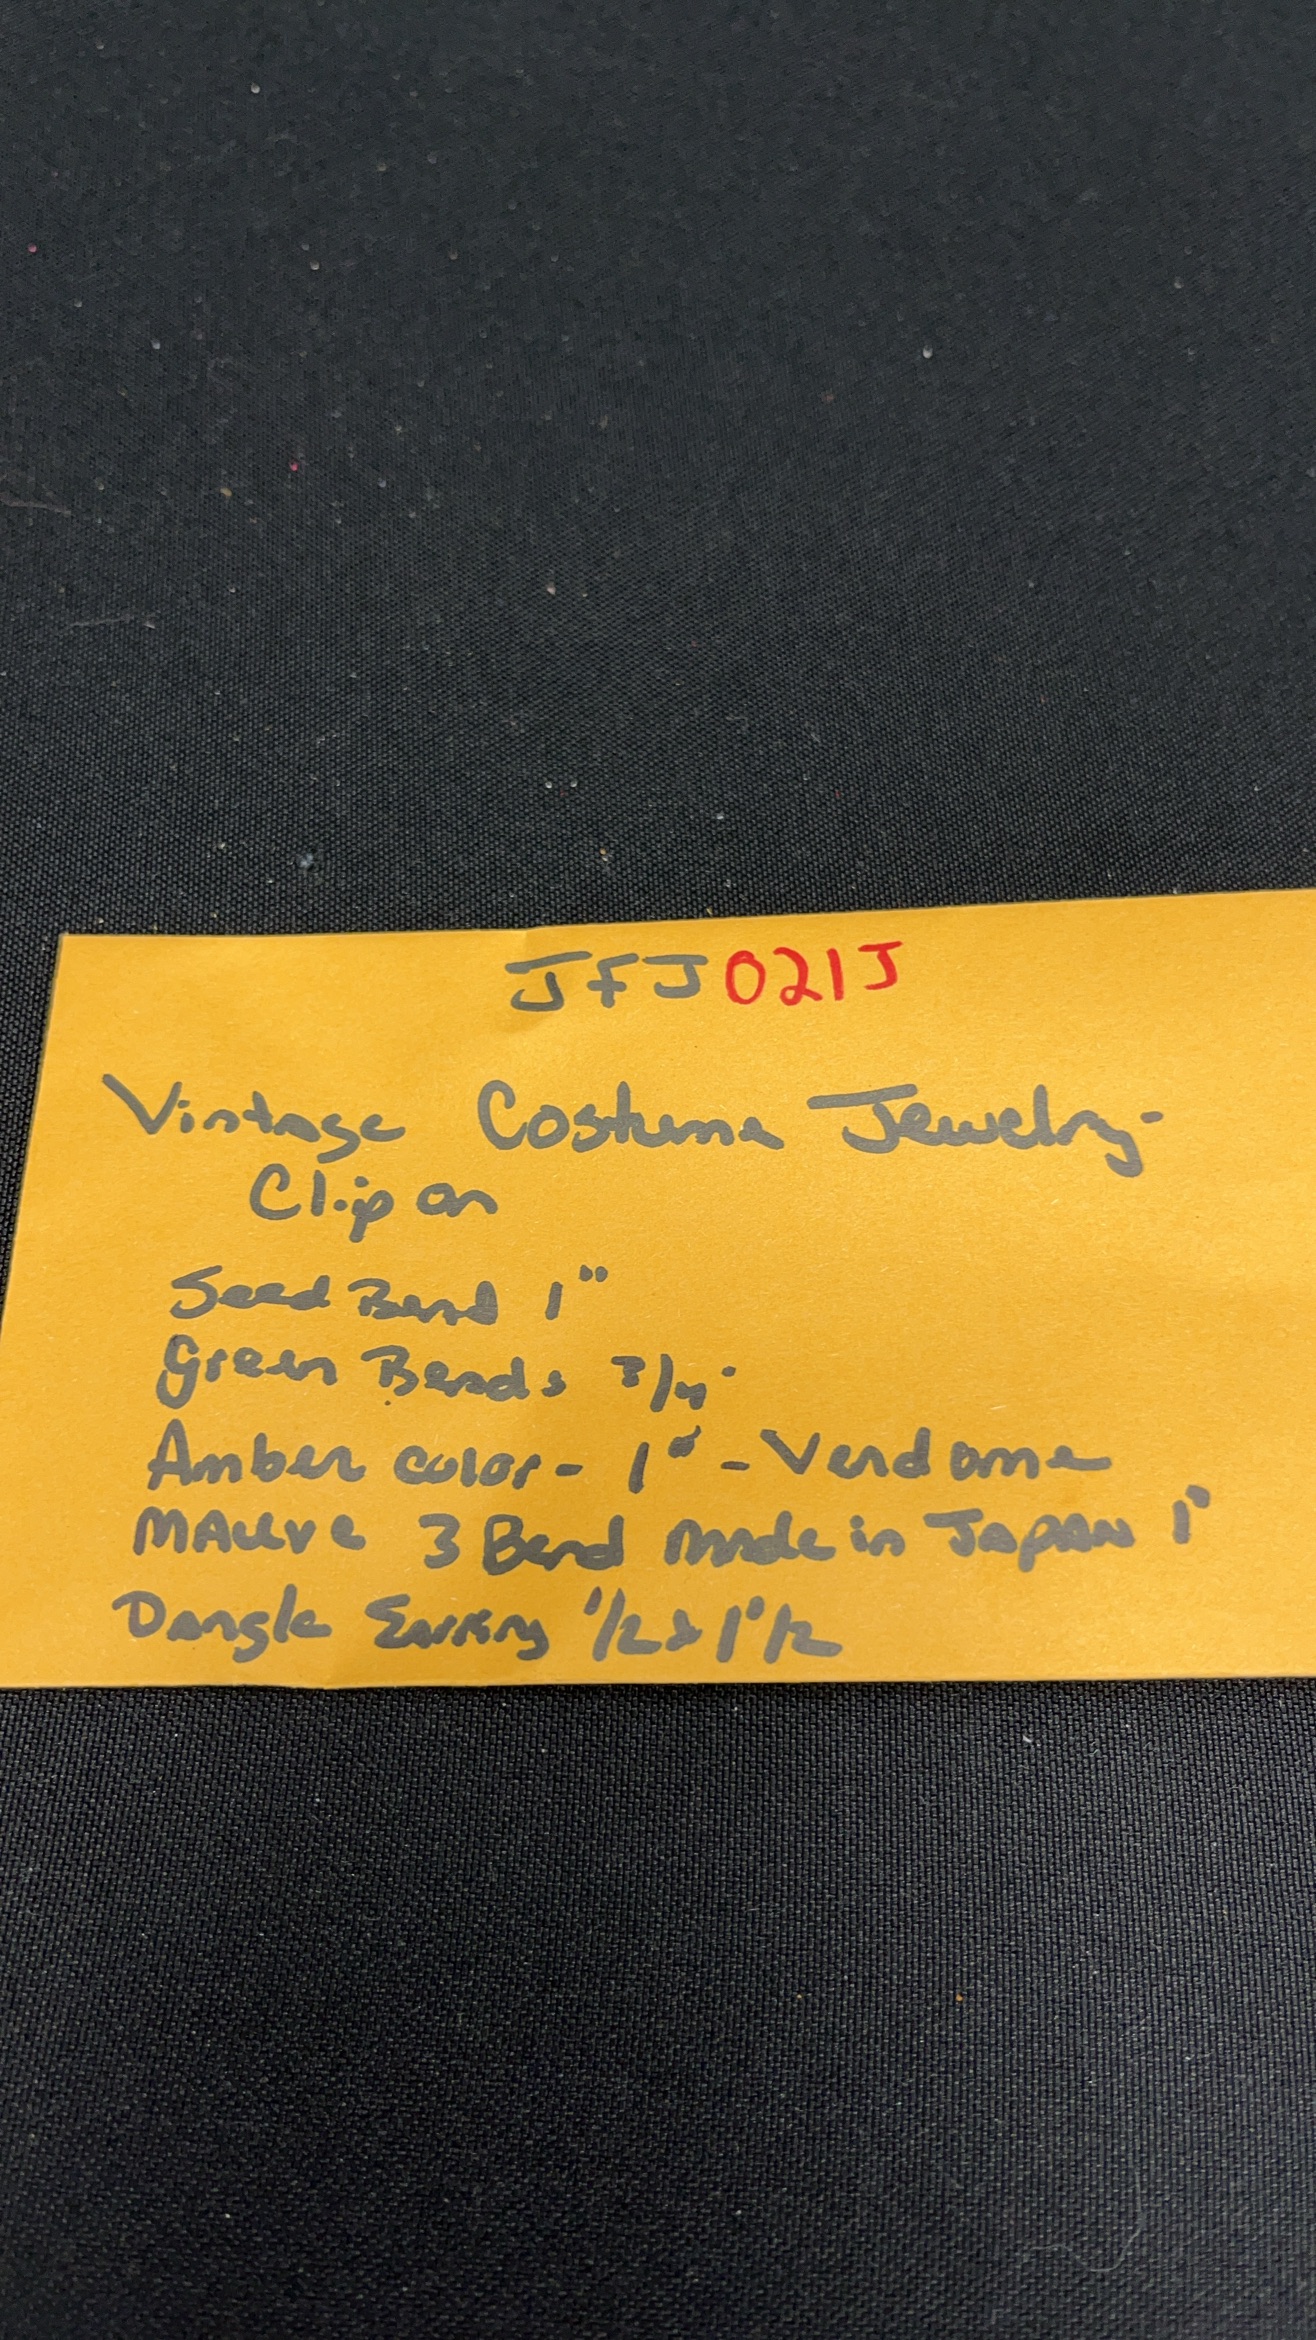 JFJ021J
Vintage Costume Jewelry-
Clip on
Seed Bead 1"
Green Beads 3/4"
Amber color - 1" - Vendome
MAuve 3 Bead made in JAPAN 1"
Dangle Earring 1/2 & 1 1/2